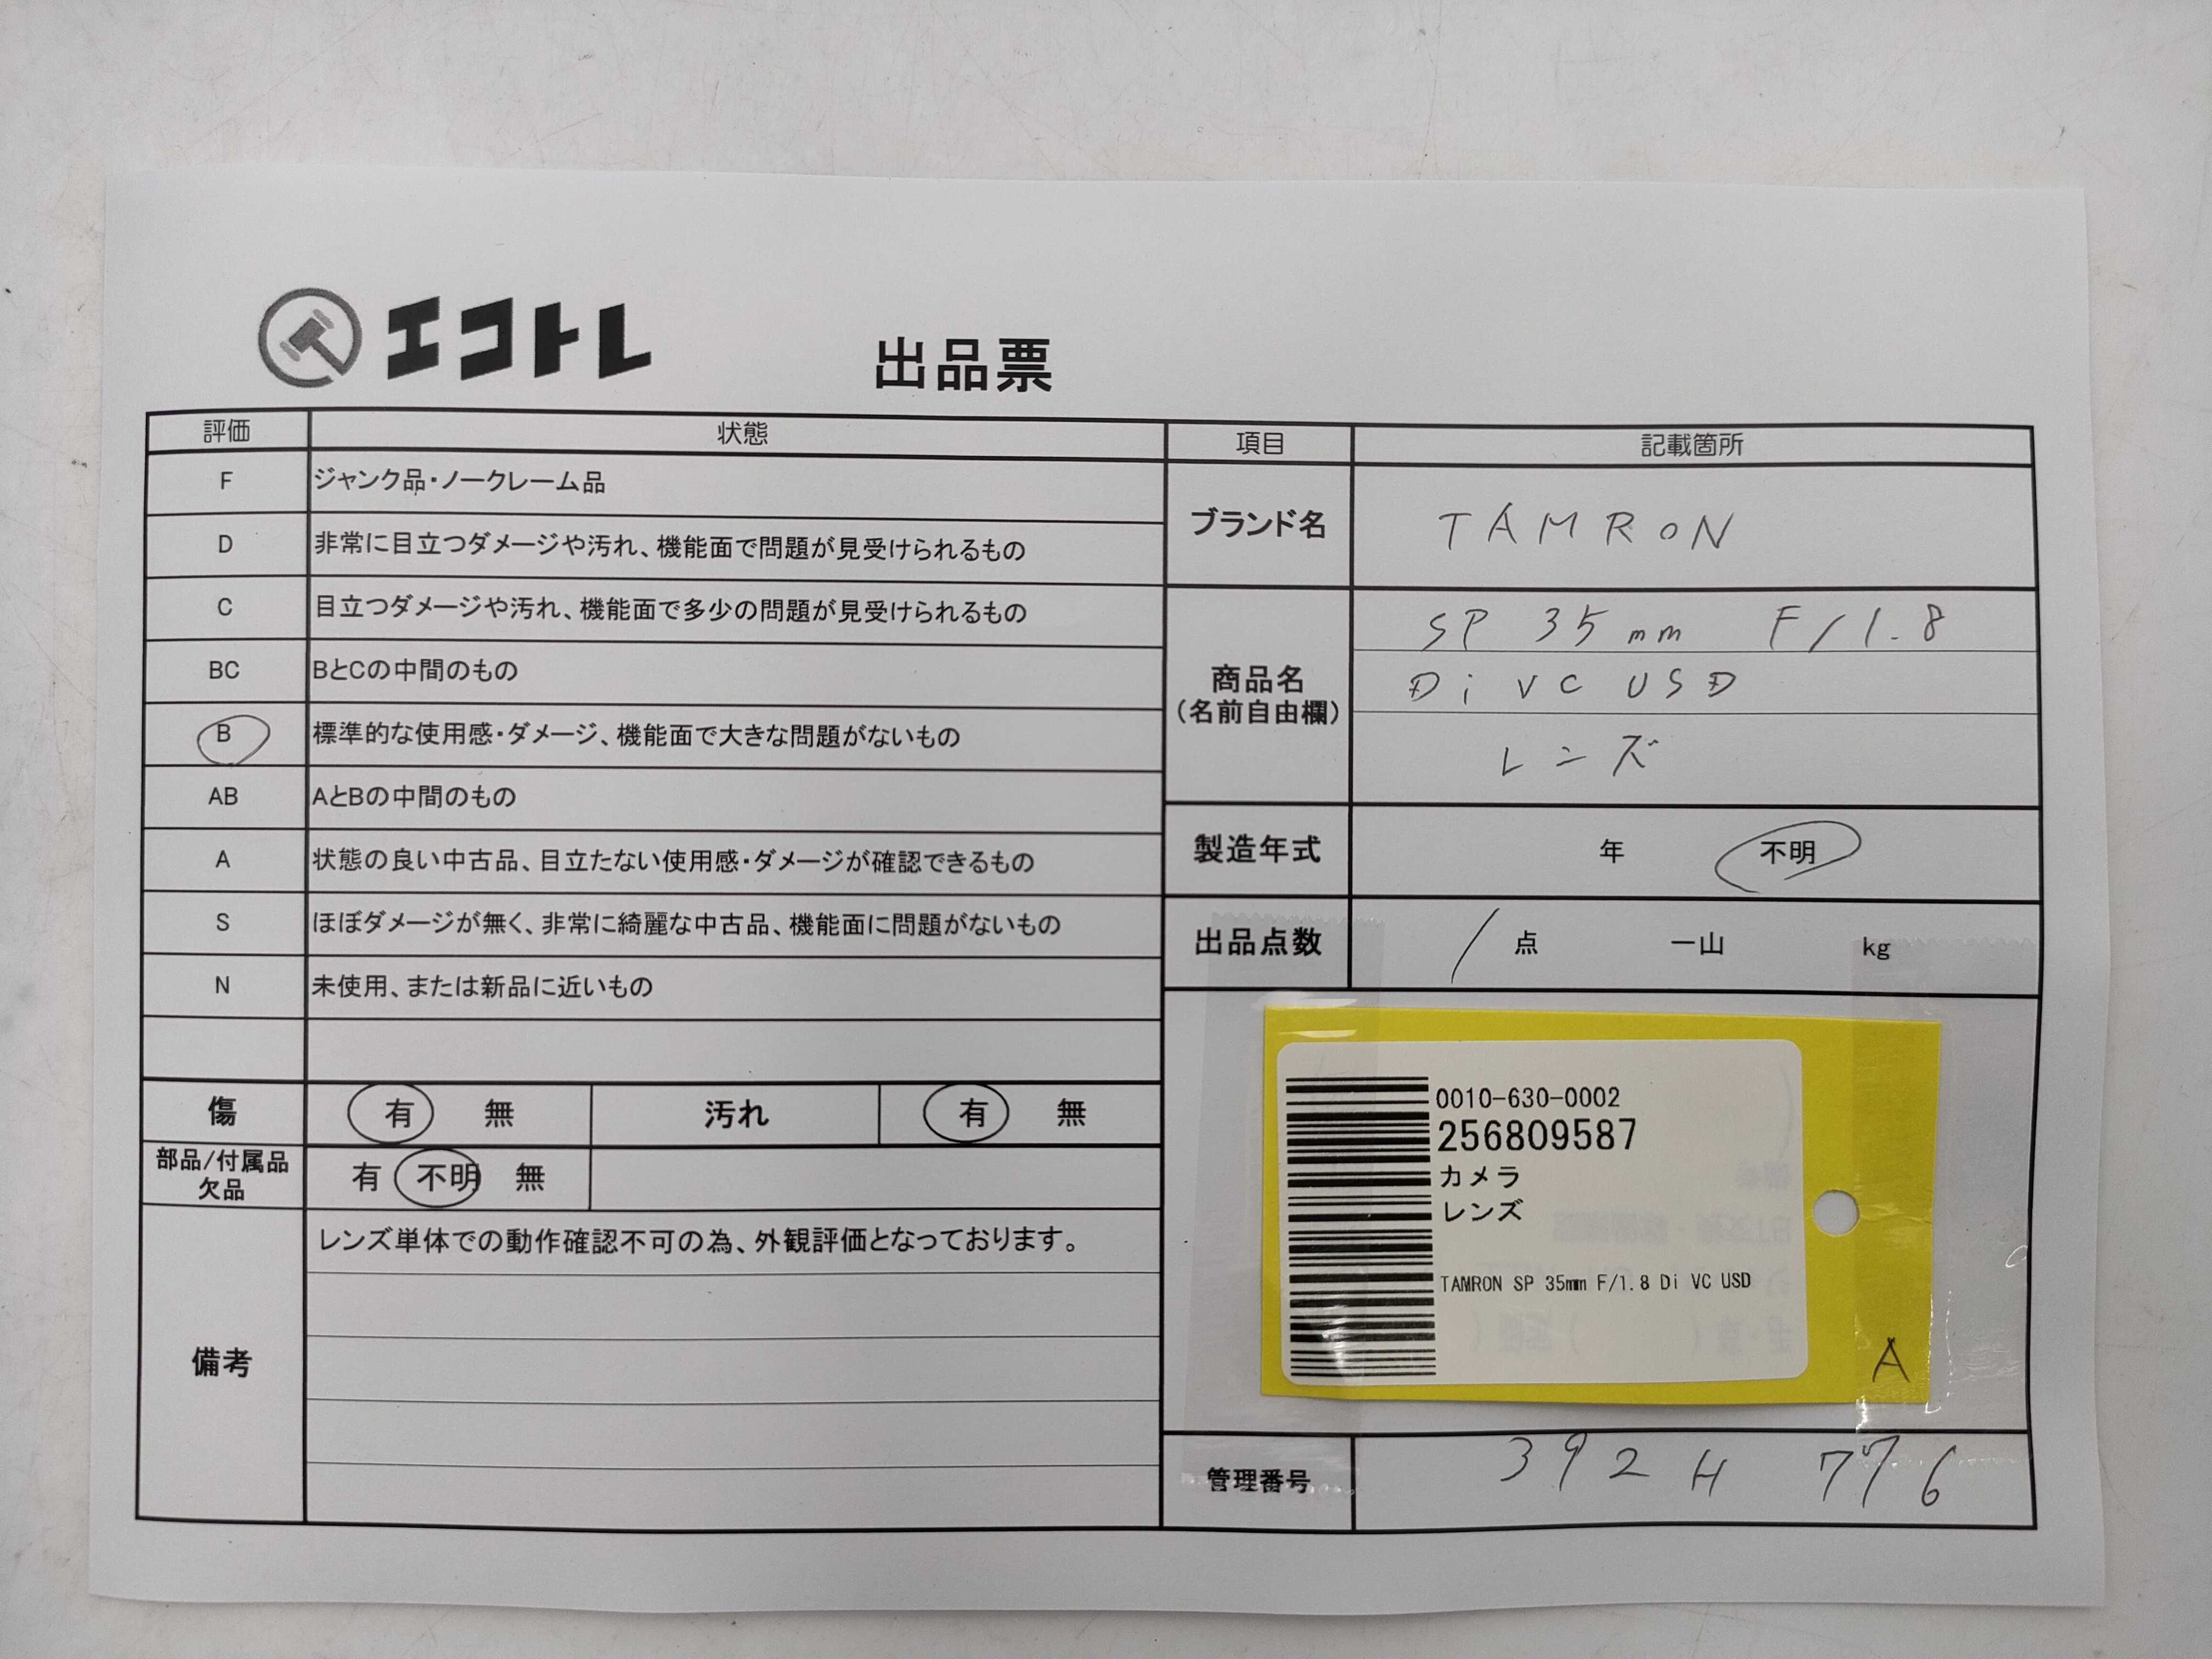 エコトレ
出品票
評価 状態
F ジャンク品・ノークレーム品
D 非常に目立つダメージや汚れ、機能面で問題が見受けられるもの
C 目立つダメージや汚れ、機能面で多少の問題が見受けられるもの
BC BとCの中間のもの
B 標準的な使用感・ダメージ、機能面で大きな問題がないもの
AB AとBの中間のもの
A 状態の良い中古品、目立たない使用感・ダメージが確認できるもの
S ほぼダメージが無く、非常に綺麗な中古品、機能面に問題がないもの
N 未使用、または新品に近いもの
傷 有 無 汚れ 有 無
部品/付属品
欠品
有 不明 無
備考
レンズ単体での動作確認不可の為、外観評価となっております。
項目 記載箇所
ブランド名 TAMRON
商品名
(名前自由欄)
SP 35mm F/1.8
Di VC USD
レンズ
製造年式 年 不明
出品点数 1 点 一山 kg
0010-630-0002
256809587
カメラ
レンズ
TAMRON SP 35mm F/1.8 Di VC USD
A
管理番号 392H 776